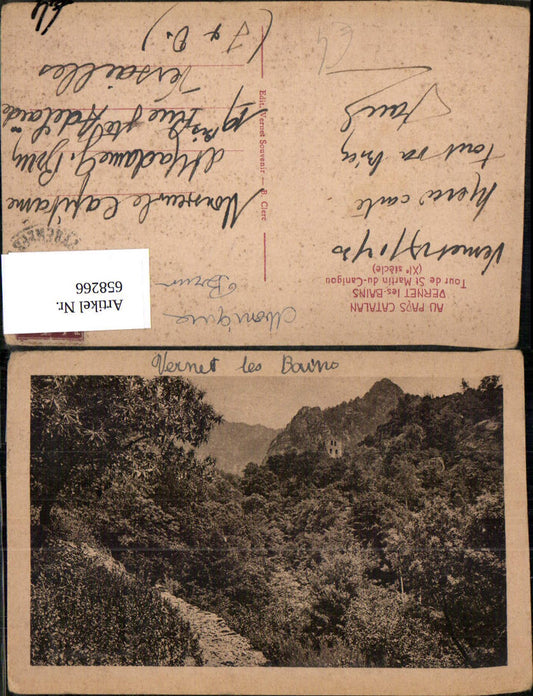 AU PAYS CATALAN
VERNET les-BAINS
Tour de St Martin du-Canigou
(XIe siècle)
Vernet
Merci carte
tout va bien
Edit. Vernet Souvenir — B. Clerc
Monsieur le Capitaine
et Madame J. Brun
19 rue Ste Adélaïde
Versailles
(S & O.)
Monique
Brun
Artikel Nr.
658266
Vernet les Bains